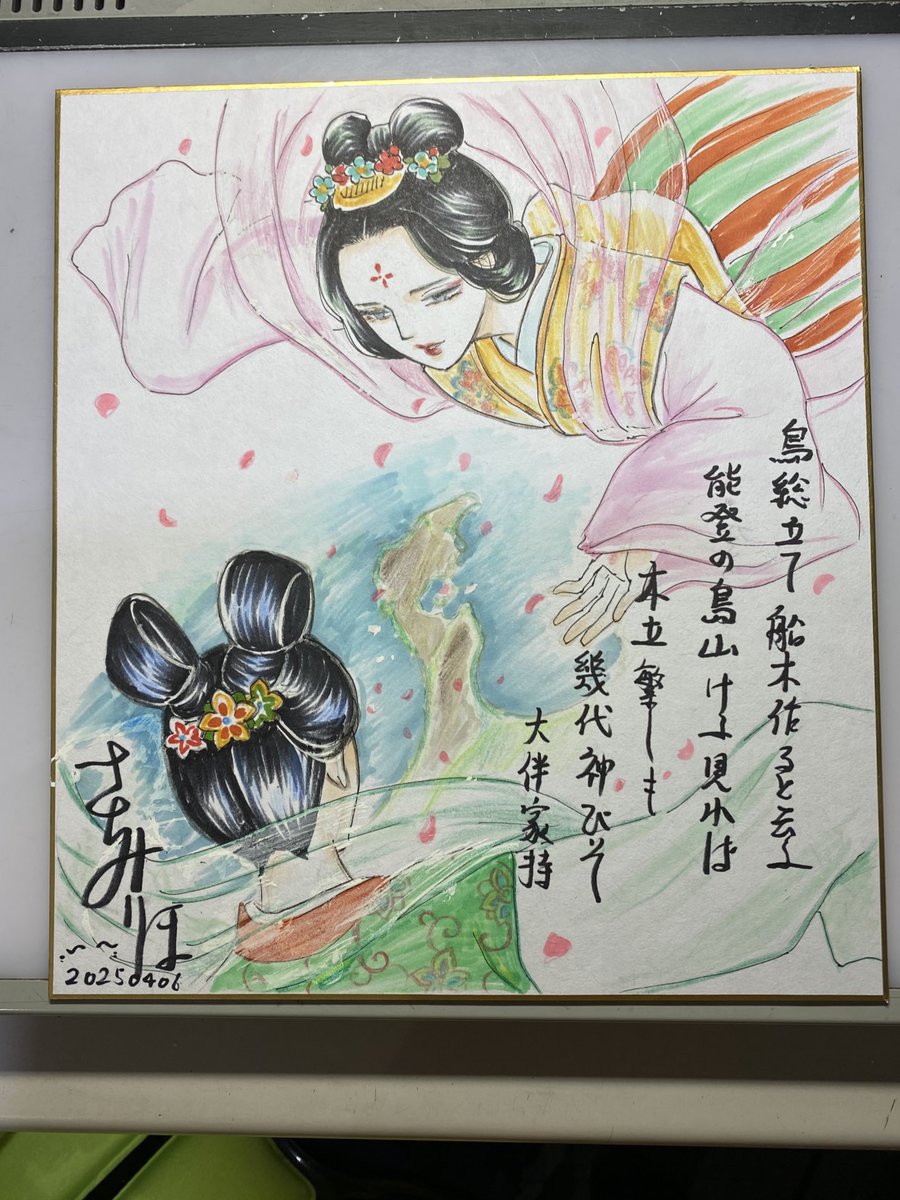 鳥総立て 船木伐ると云ふ
能登の島山けふ見れば
木立繁しも
幾代神びそ
大伴家持
さちみりほ
20250406